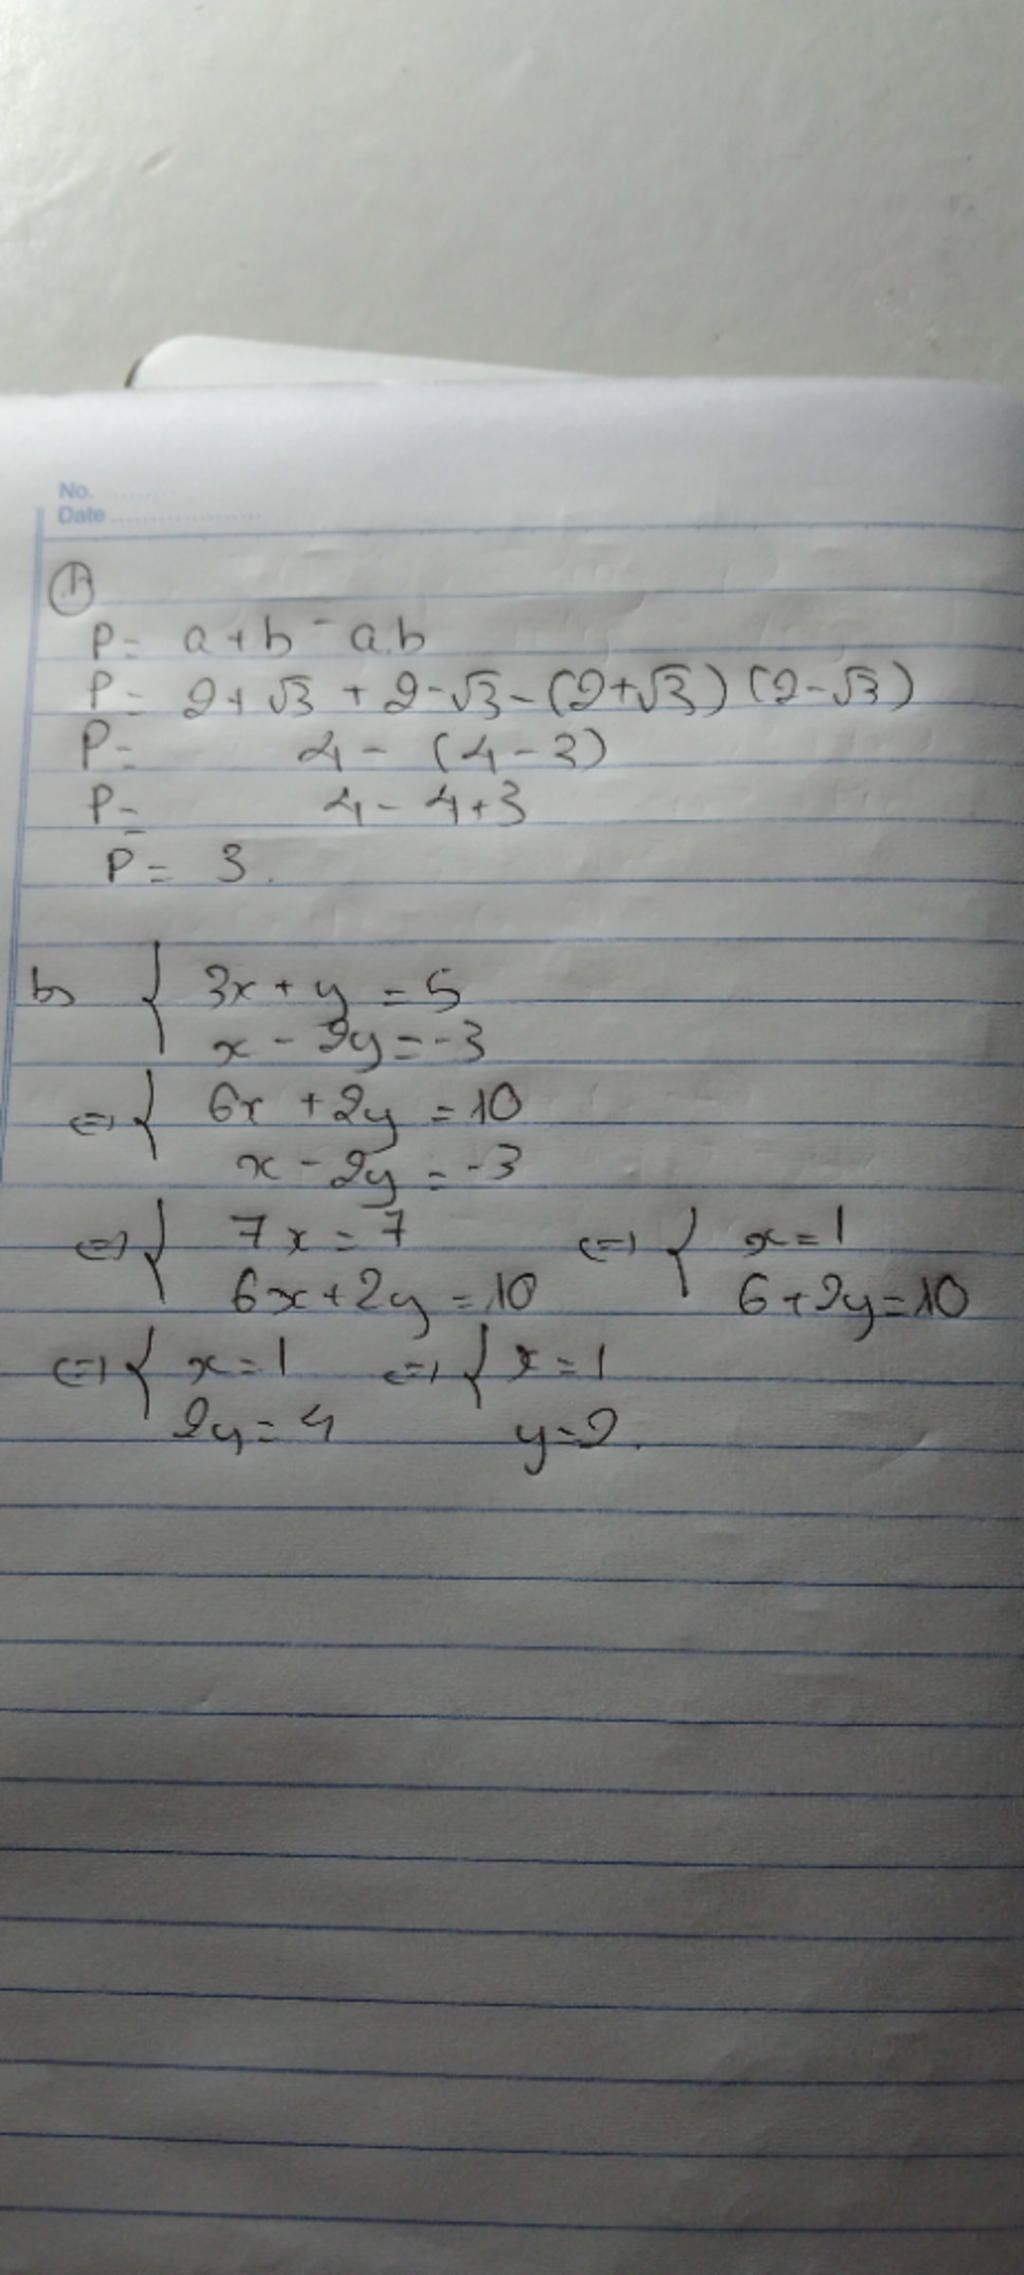 No. ..........
Date ....................
①
P = a + b - a.b
P = 2 + √3 + 2 - √3 - (2 + √3) (2 - √3)
P = 4 - (4 - 3)
P = 4 - 4 + 3
P = 3.
b) { 3x + y = 5
x - 2y = -3
<=> { 6x + 2y = 10
x - 2y = -3
<=> { 7x = 7 <=> { x = 1
6x + 2y = 10 6 + 2y = 10
<=> { x = 1 <=> { x = 1
2y = 4 y = 2.